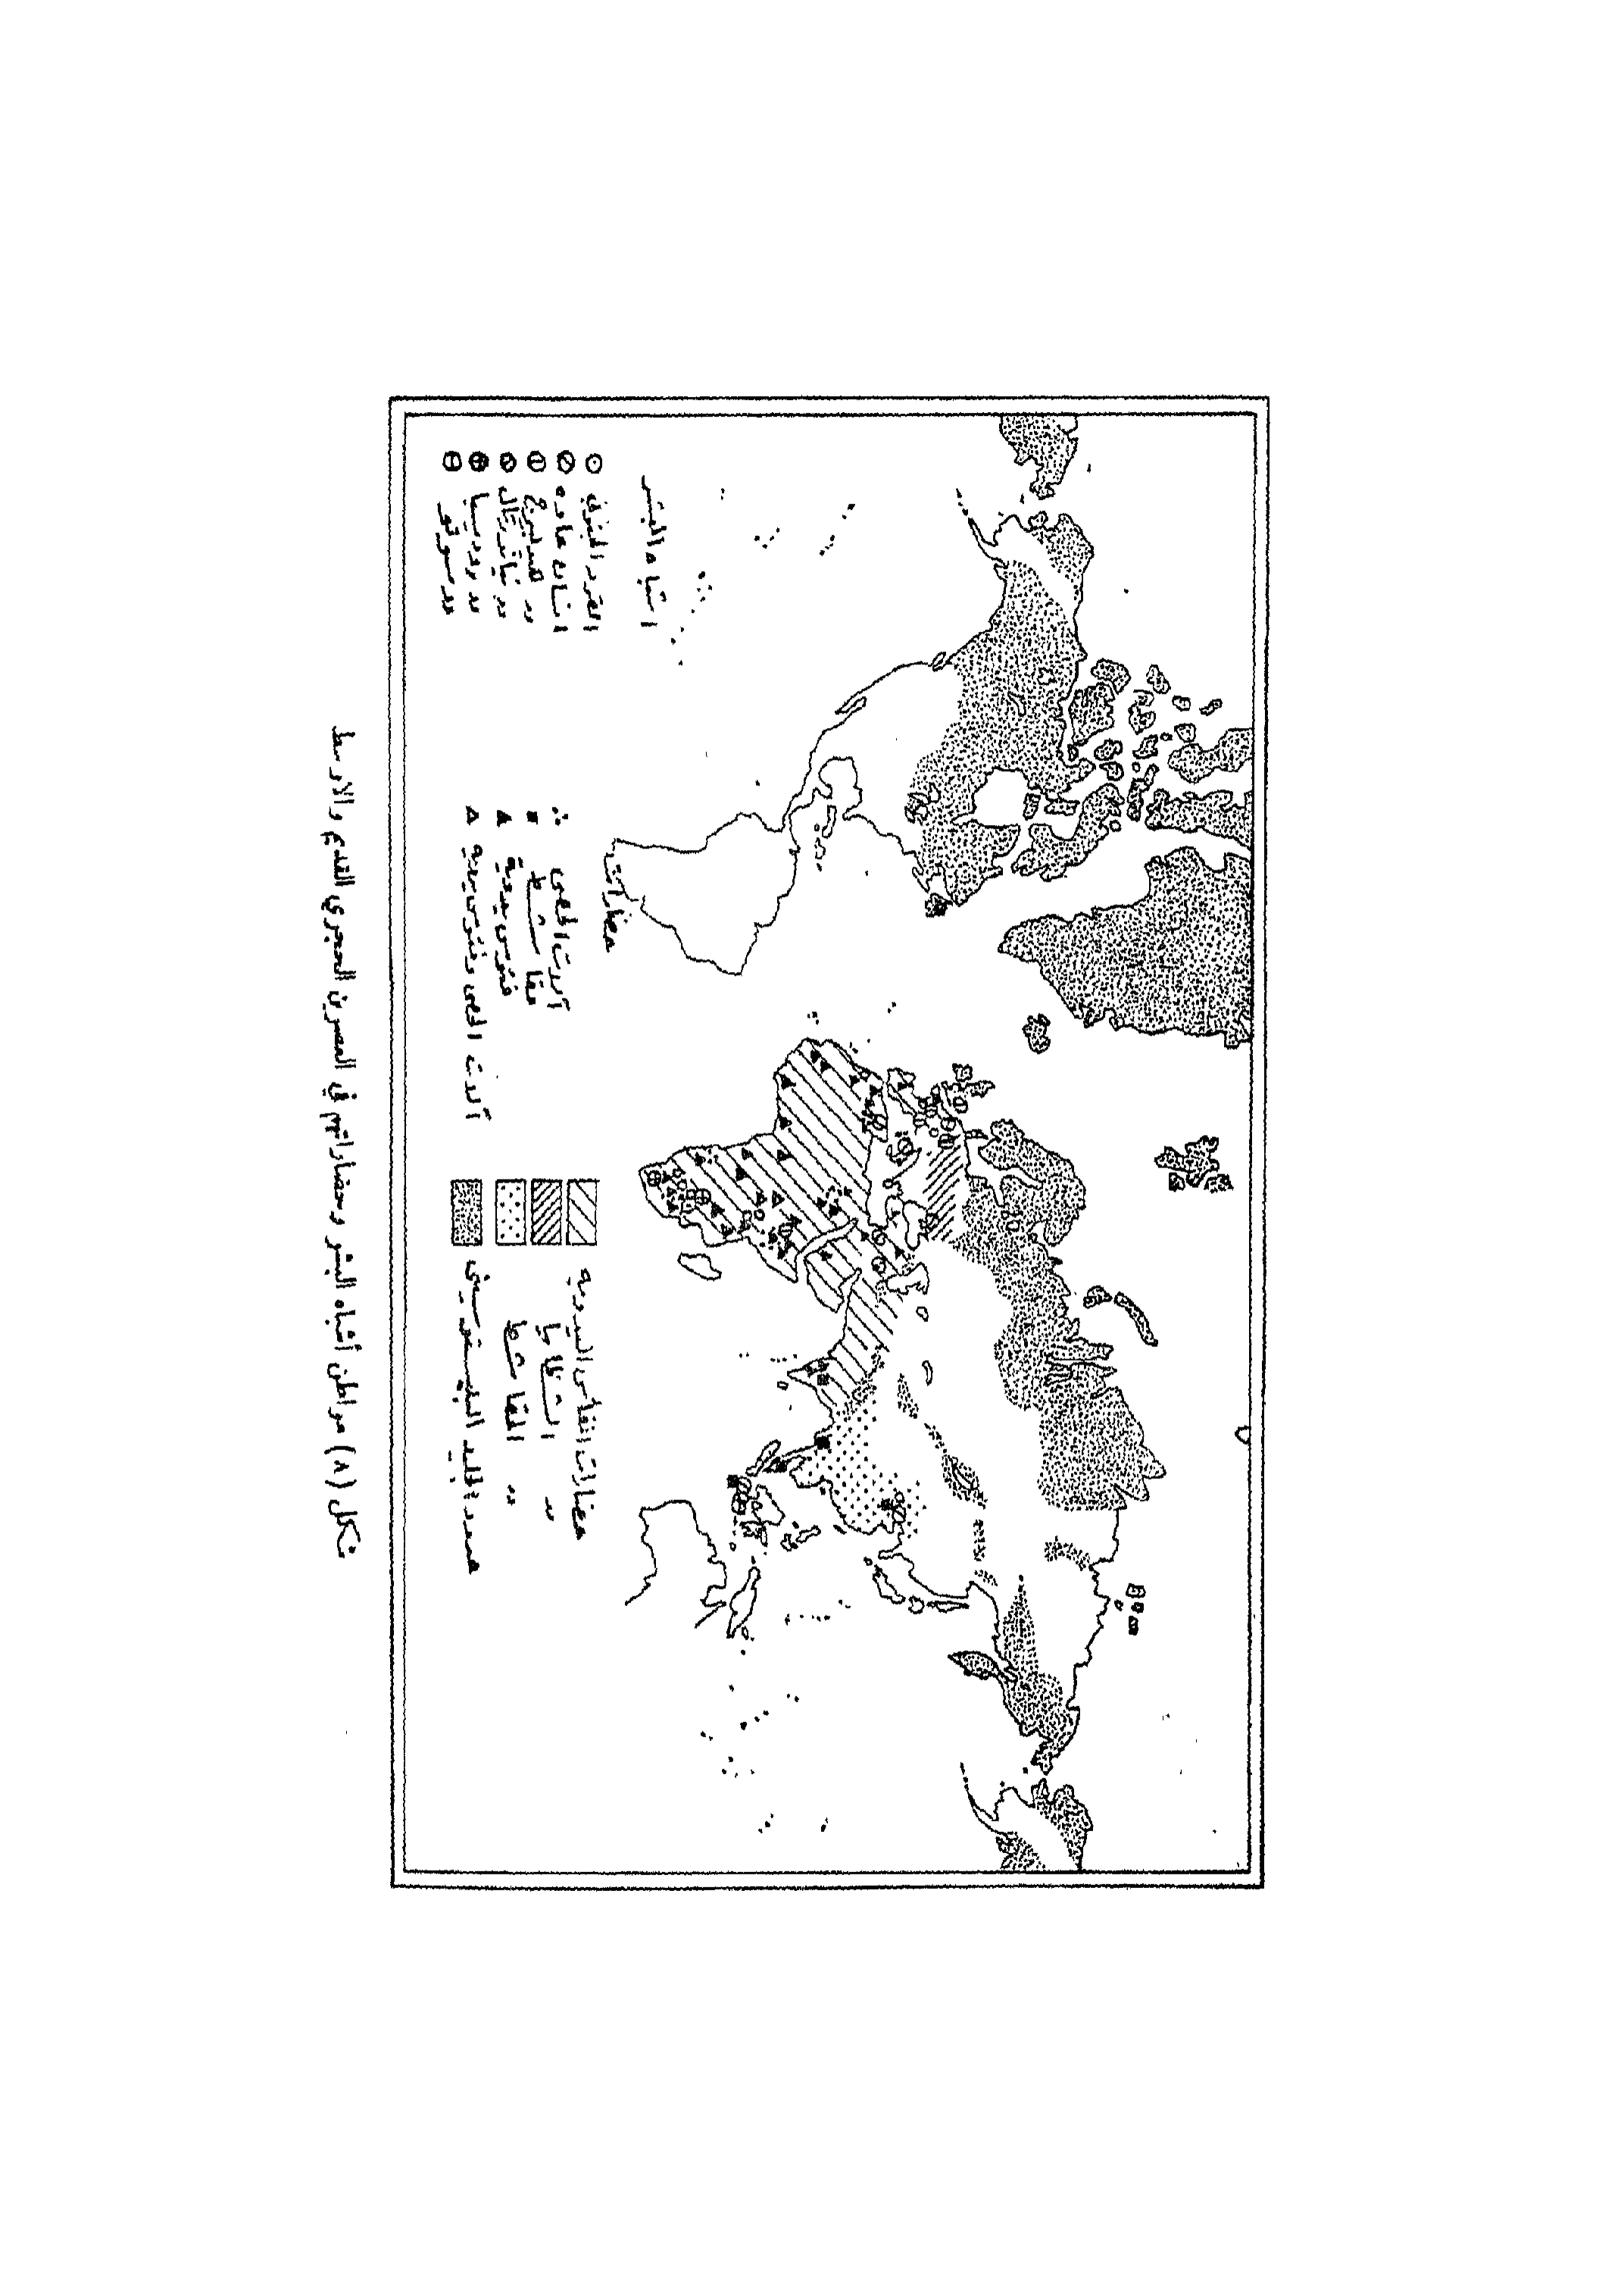 أشباه البشر
القرد الجنوبي
انسان جاوه
〃 هيدلبرج
〃 نياندرتال
〃 روديسيا
〃 سولو
حضارات
آلات الحصى
مقاشط
فئوس يدوية
آلات الحصى وفئوس يدويه
حضارات الفأس اليدويه
〃 الشظايا
〃 المقاشط
حدود الجليد البليستوسينى
شكل (٨) مواطن أشباه البشر وحضاراتهم في العصرين الحجري القديم والاوسط